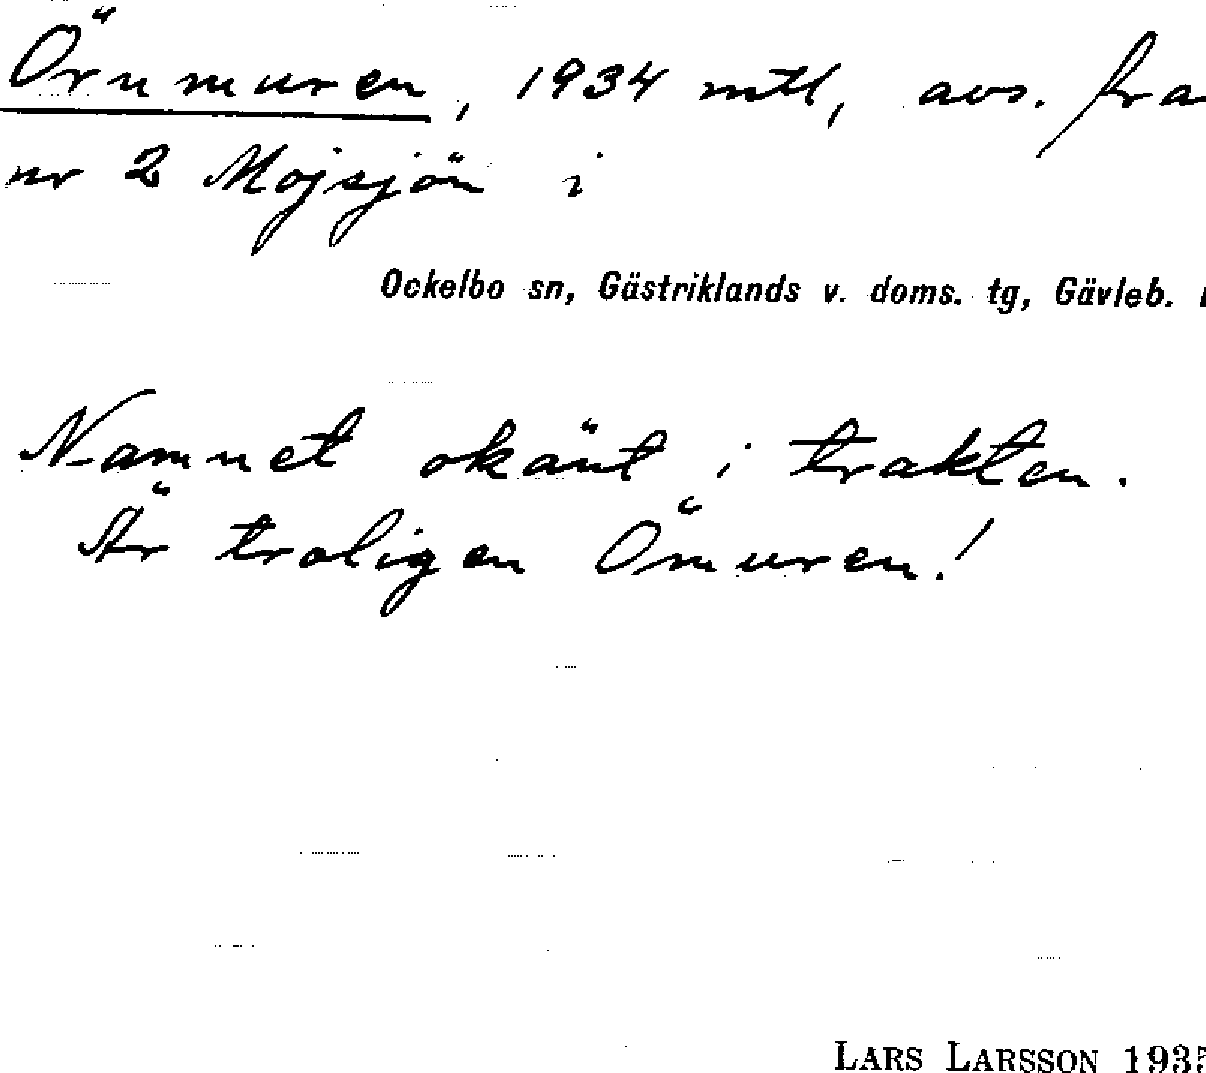 Örnmuren, 1934 mtl, avs. fra
nr 2 Mojsjön i
Ockelbo sn, Gästriklands v. doms. tg, Gävleb.
Namnet okänt i trakten.
Är troligen Ömuren!
LARS LARSSON 1935